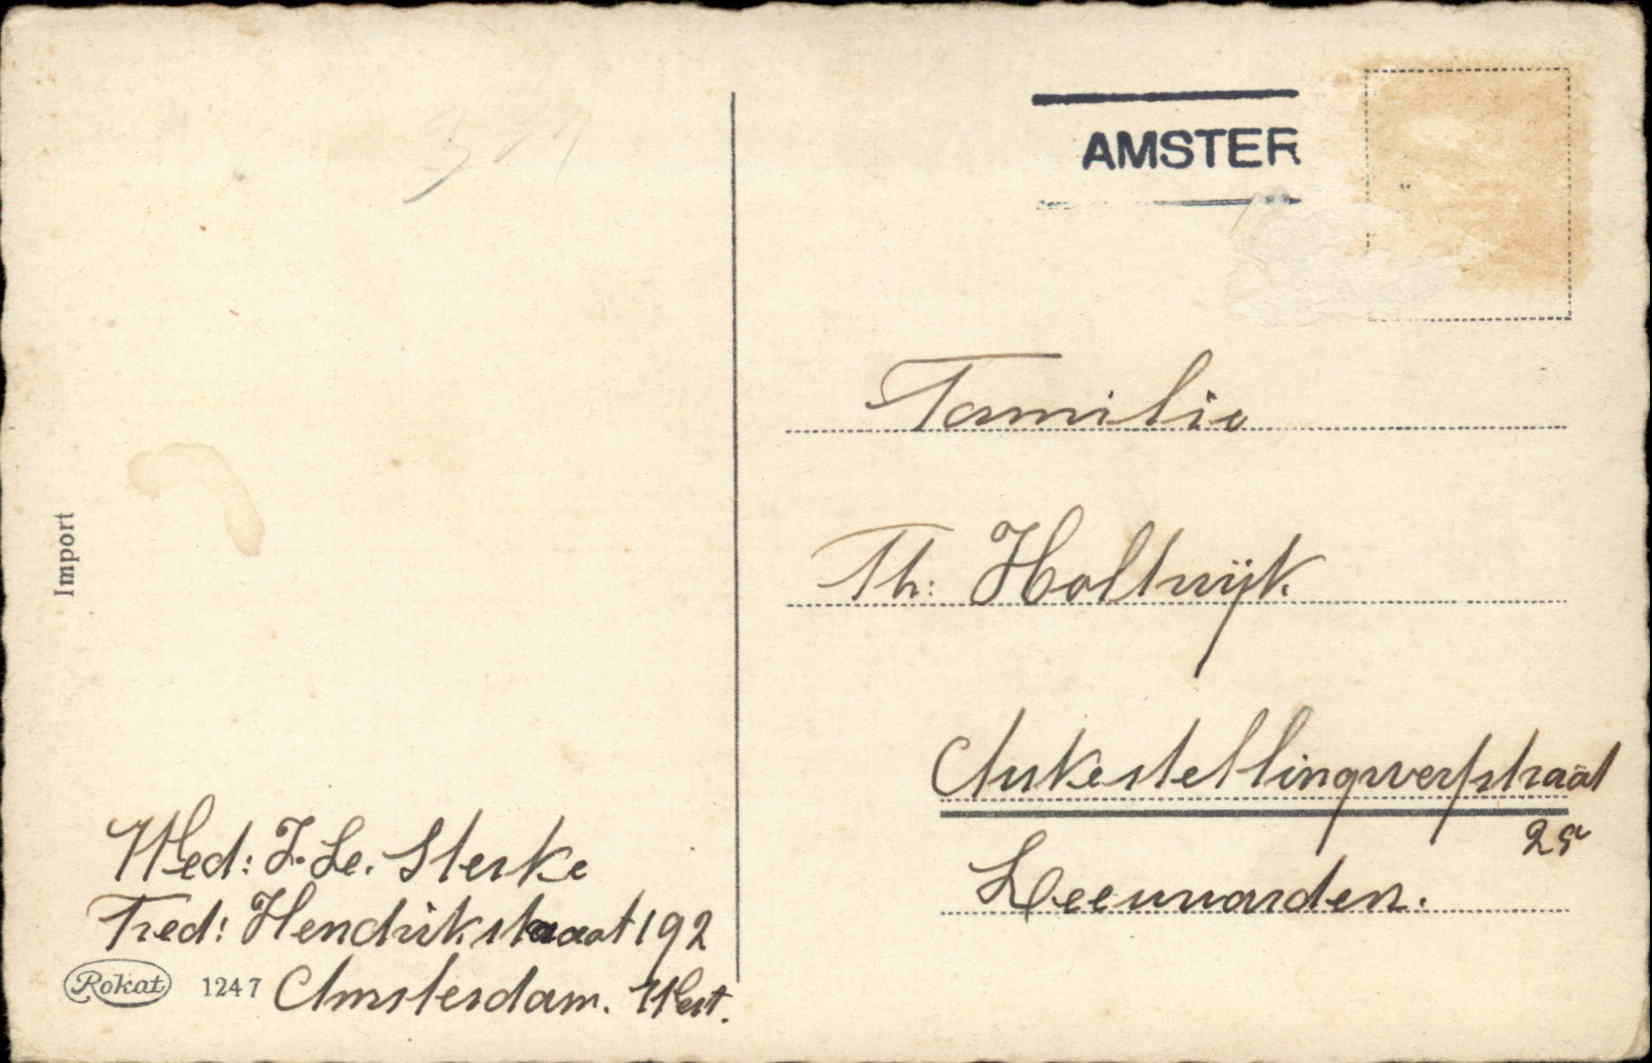 AMSTER
Familie
Th: Holtwijk
Aukestellingwerfstraat
29
Leeuwarden.
Import
Wed: J. Le. Sterke
Fred: Hendrikstraat 192
Amsterdam. West.
Rokat 1247